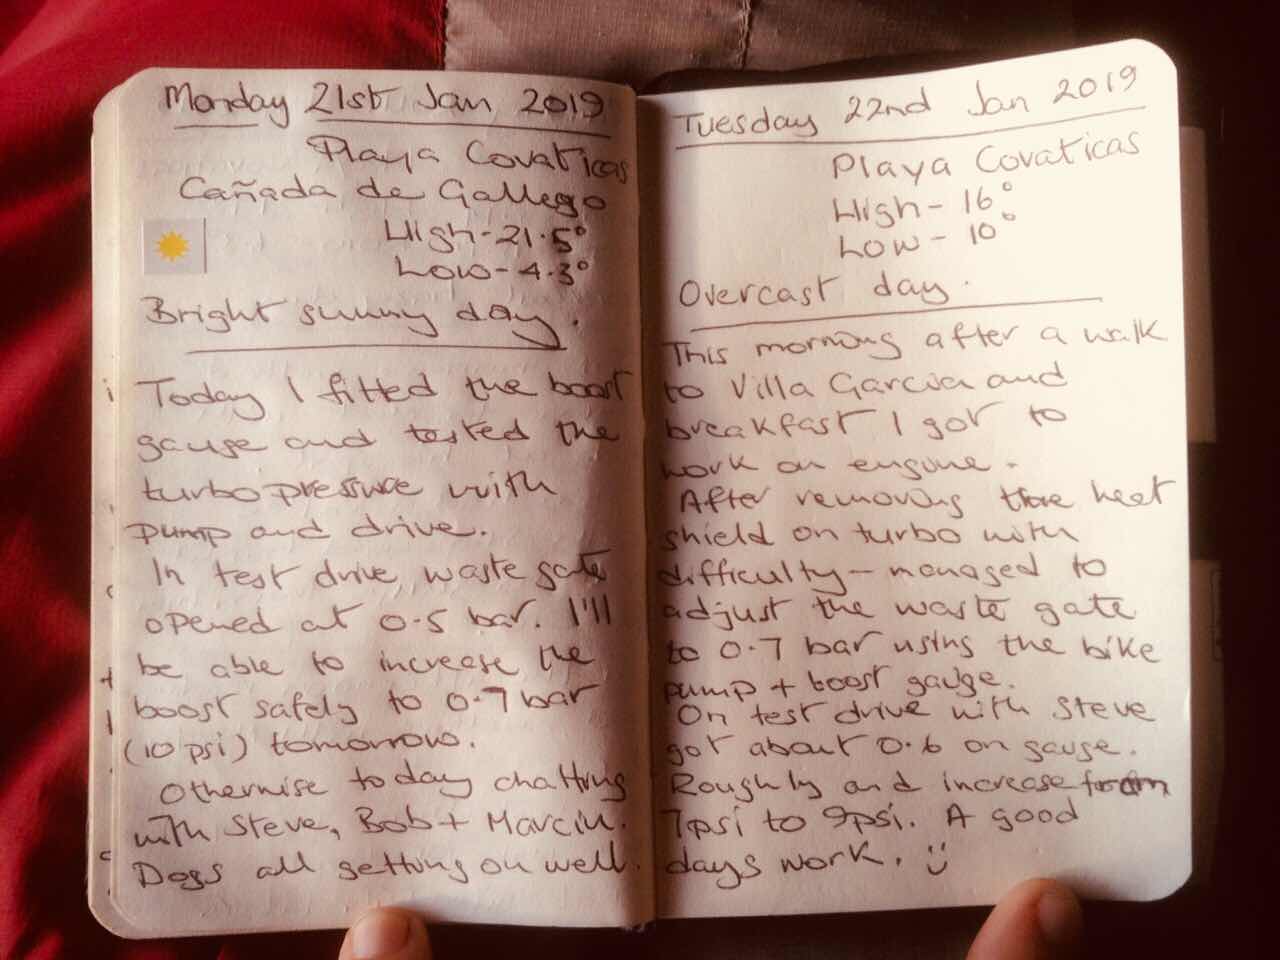 Monday 21st Jan 2019
Playa Covaticas
Cañada de Gallego
High-21.5°
Low-4.3°
Bright sunny day.
Today I fitted the boost
gauge and tested the
turbo pressure with
pump and drive.
In test drive waste gate
opened at 0.5 bar. I'll
be able to increase the
boost safely to 0.7 bar
(10 psi) tomorrow.
Otherwise today chatting
with Steve, Bob + Marcin.
Dogs all getting on well.
Tuesday 22nd Jan 2019
Playa Covaticas
High-16°
Low-10°
Overcast day.
This morning after a walk
to Villa Garcia and
breakfast I got to
work on engine.
After removing the heat
shield on turbo with
difficulty-managed to
adjust the waste gate
to 0.7 bar using the bike
pump + boost gauge.
On test drive with Steve
got about 0.6 on gauge.
Roughly and increase from
7psi to 9psi. A good
days work. :)